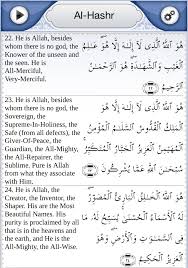 Al-Hashr
22. He is Allah, besides
whom there is no god, the
Knower of the unseen and
the seen. He is
All-Merciful,
Very-Merciful.
هُوَ اللَّهُ الَّذِي لَا إِلَٰهَ إِلَّا هُوَ ۖ عَالِمُ
الْغَيْبِ وَالشَّهَادَةِ ۖ هُوَ الرَّحْمَٰنُ
الرَّحِيمُ
23. He is Allah, besides
whom there is no god, the
Sovereign, the
Supreme-In-Holiness, the
Safe (from all defects), the
Giver-Of-Peace, the
Guardian, the All-Mighty,
the All-Repairer, the
Sublime. Pure is Allah
from what they associate
with Him.
هُوَ اللَّهُ الَّذِي لَا إِلَٰهَ إِلَّا هُوَ الْمَلِكُ
الْقُدُّوسُ السَّلَامُ الْمُؤْمِنُ الْمُهَيْمِنُ
الْعَزِيزُ الْجَبَّارُ الْمُتَكَبِّرُ ۚ سُبْحَانَ
اللَّهِ عَمَّا يُشْرِكُونَ
24. He is Allah, the
Creator, the Inventor, the
Shaper. His are the Most
Beautiful Names. His
purity is proclaimed by all
that is in the heavens and
the earth, and He is the
All-Mighty, the All-Wise.
هُوَ اللَّهُ الْخَالِقُ الْبَارِئُ الْمُصَوِّرُ ۖ
لَهُ الْأَسْمَاءُ الْحُسْنَىٰ ۚ يُسَبِّحُ لَهُ مَا فِي
السَّمَاوَاتِ وَالْأَرْضِ ۖ وَهُوَ الْعَزِيزُ
الْحَكِيمُ